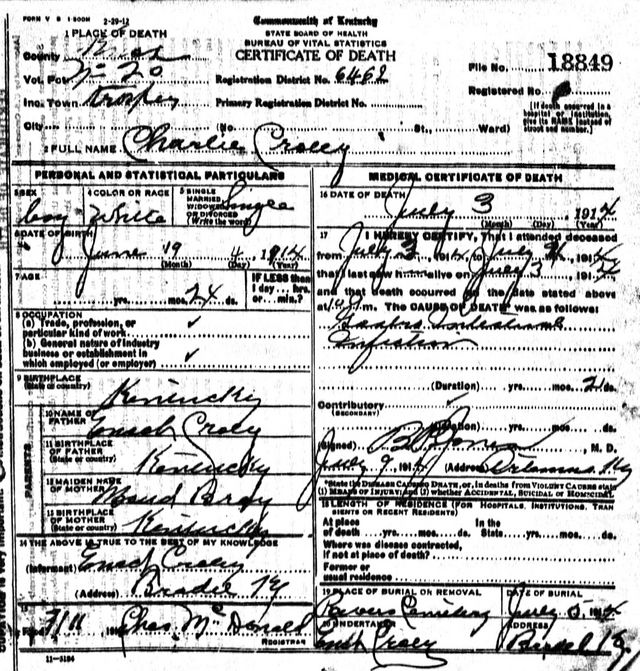 FORM V S 1 500M 2-29-12
Commonwealth of Kentucky
STATE BOARD OF HEALTH
BUREAU OF VITAL STATISTICS
CERTIFICATE OF DEATH
1 PLACE OF DEATH
County
Vot. Pct.
Inc. Town
City
Registration District No. 6462
Primary Registration District No.
(No. St., Ward)
File No. 18849
Registered No.
[If death occurred in a hospital or institution, give its NAME instead of street and number.]
2 FULL NAME Charlie Croley
PERSONAL AND STATISTICAL PARTICULARS
3 SEX boy
4 COLOR OR RACE White
5 SINGLE MARRIED, WIDOWED OR DIVORCED (Write the word) Single
6 DATE OF BIRTH
June 19 4, 1914
(Month) (Day) (Year)
7 AGE
yrs. mos. 24 ds.
IF LESS than 1 day... hrs. or min.?
8 OCCUPATION
(a) Trade, profession, or particular kind of work
(b) General nature of industry business or establishment in which employed (or employer)
9 BIRTHPLACE (State or country) Kentucky
PARENTS
10 NAME OF FATHER Croley
11 BIRTHPLACE OF FATHER (State or country) Kentucky
12 MAIDEN NAME OF MOTHER
13 BIRTHPLACE OF MOTHER (State or country) Kentucky
14 THE ABOVE IS TRUE TO THE BEST OF MY KNOWLEDGE
(Informant) Croley
(Address) Ky
15
Filed 7/11 191 Chas McDonald
REGISTRAR
11-3184
MEDICAL CERTIFICATE OF DEATH
16 DATE OF DEATH
July 3, 1914
(Month) (Day) (Year)
17 I HEREBY CERTIFY, That I attended deceased
from July 3, 1914, to July, 1914
that I last saw h alive on July 3, 1914
and that death occurred on the date stated above
at m. The CAUSE OF DEATH was as follows:
Gastro Intestinal
Infection
(Duration) yrs. mos. 2 ds.
Contributory
(SECONDARY)
(Duration) yrs. mos. ds.
(Signed) Jones, M. D.
July 9, 1914 (Address) Artemus, Ky
*State the DISEASE CAUSING DEATH, or, in deaths from VIOLENT CAUSES state (1) MEANS OF INJURY; and (2) whether ACCIDENTAL, SUICIDAL or HOMICIDAL.
18 LENGTH OF RESIDENCE (FOR HOSPITALS, INSTITUTIONS, TRANSIENTS OR RECENT RESIDENTS)
At place of death yrs. mos. ds. In the State yrs. mos. ds.
Where was disease contracted, if not at place of death?
Former or usual residence
19 PLACE OF BURIAL OR REMOVAL
Cemetery
DATE OF BURIAL
July 5, 1914
20 UNDERTAKER
Croley
ADDRESS
Ky